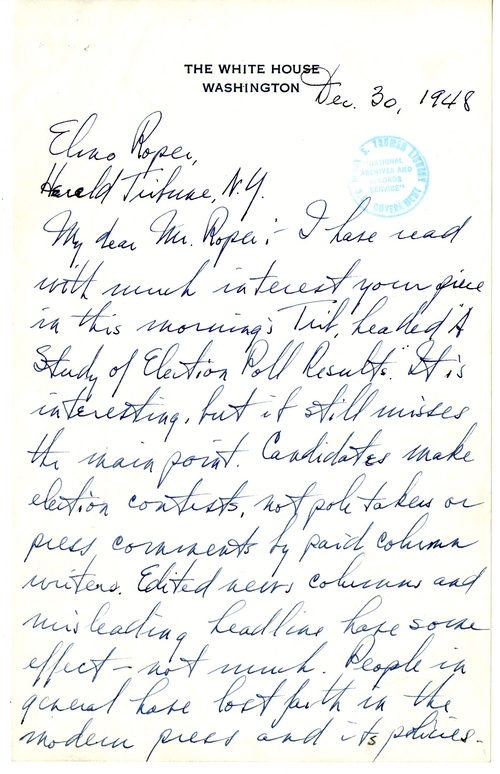 THE WHITE HOUSE
WASHINGTON
Dec. 30, 1948
Elmo Roper,
Herald Tribune, N.Y.
My dear Mr. Roper:- I have read
with much interest your piece
in this morning's Trib, headed "A
Study of Election Poll Results." It is
interesting, but it still misses
the main point. Candidates make
election contests, not pole takers or
press comments by paid column
writers. Edited news columns and
misleading headline have some
effect - not much. People in
general have lost faith in the
modern press and its policies.
NATIONAL
ARCHIVES AND
RECORDS
SERVICE